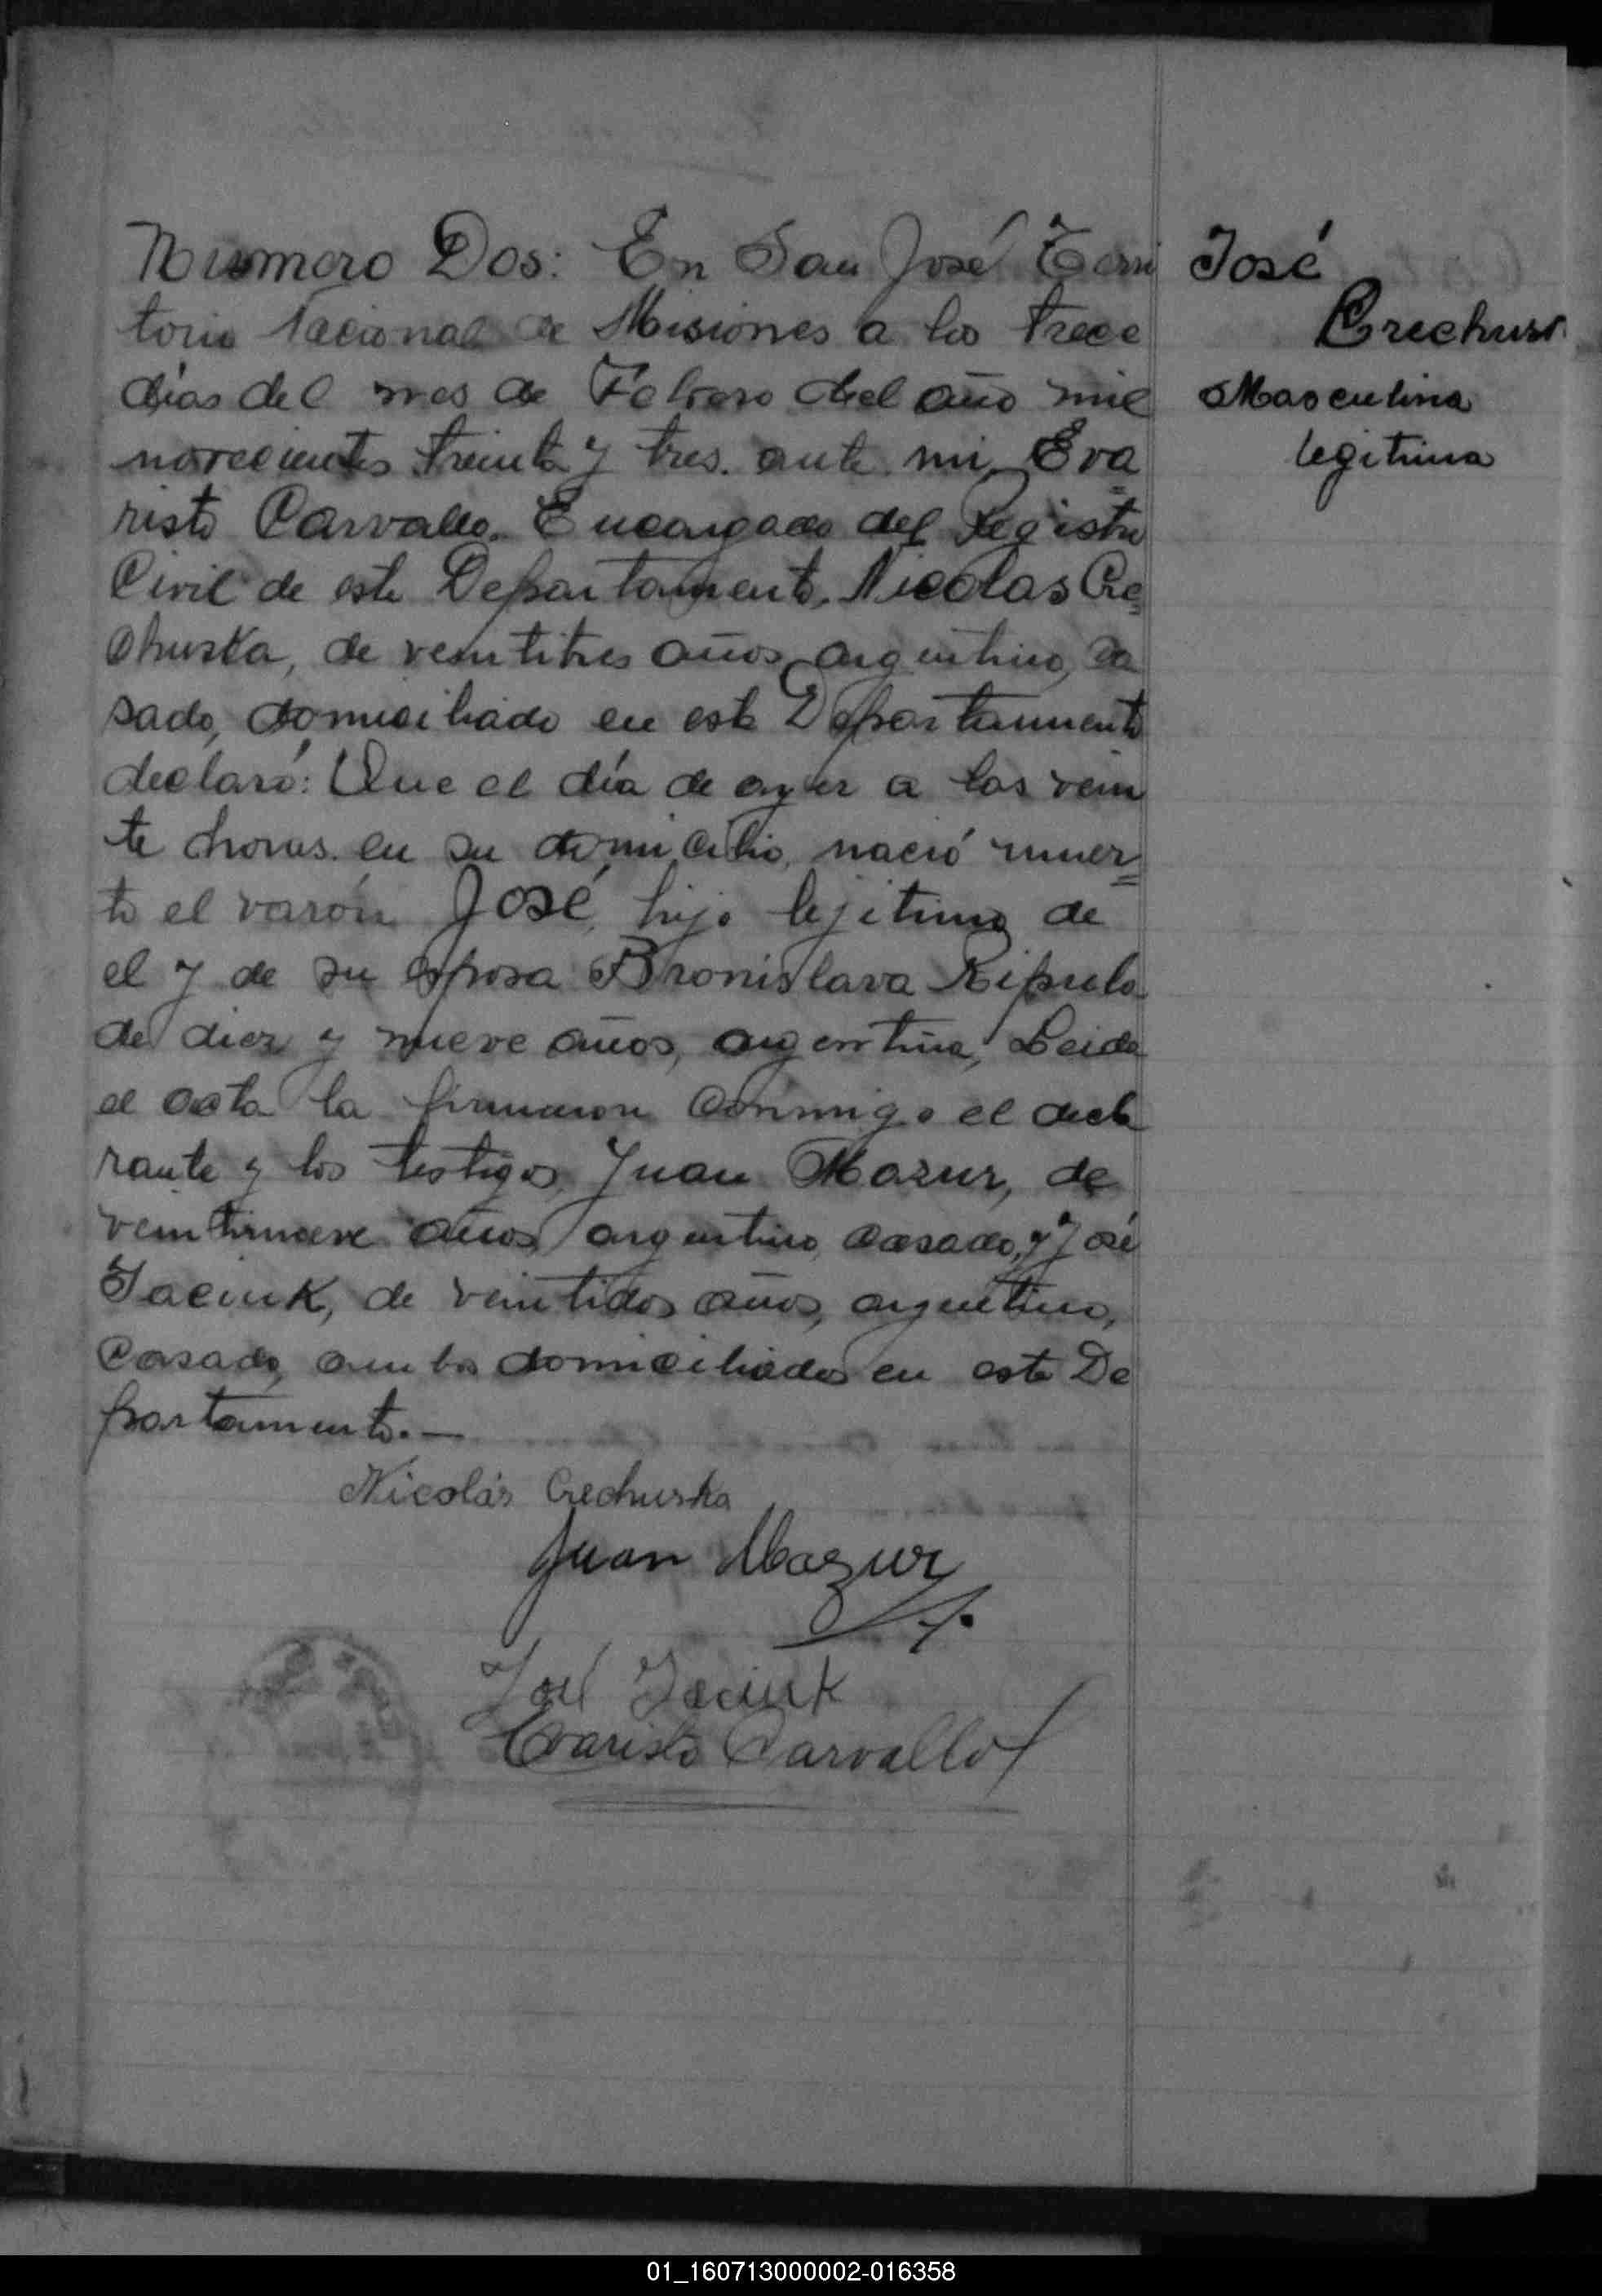 Numero Dos: En San José Terri
torio Nacional de Misiones a los trece
días del mes de Febrero del año mil
novecientos treinta y tres. ante mi, Eva=
risto Carvallo. Encargado del Registro
Civil de este Departamento, Nicolas Cre=
chuska, de veintitres años, argentino, ca
sado, domiciliado en este Departamento
declaró: Que el día de ayer a las vein
te horas. en su domicilio, nació muer=
to el varón José, hijo lejitimo de
el y de su esposa Bronislava Ripula
de diez y nueve años, argentina, Leida
el acta la firmaron conmigo el decla
rante y los testigos, Juan Mazur, de
veintinueve años, argentino, casado, y José
Jaciuk, de veintidos años, argentino,
casado, ambos domiciliados en este De
partamento.—
Nicolás Crechuska
Juan Mazur
José Jaciuk
Evaristo Carvallo
José
Crechusk
Masculina
legitima
01_160713000002-016358